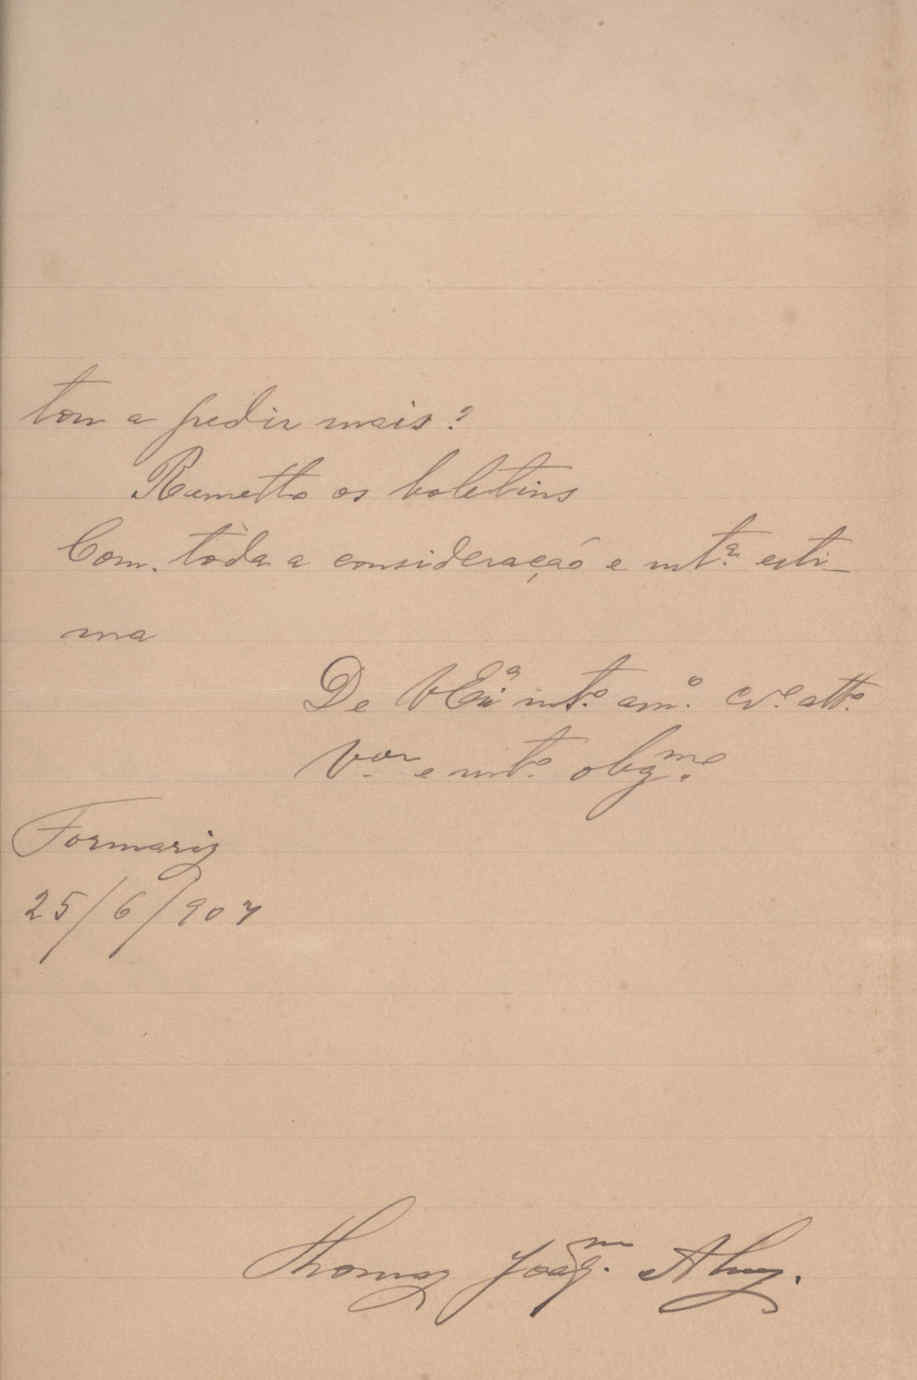 tem a pedir mais?
Remetto os boletins
Com toda a consideração e mt.ª esti-
ma
De V Ex.ª mt.º am.º cr.º att.º
V.or e mt.º obg.mo
Formariz
25/6/907
Thomaz Joaq.m